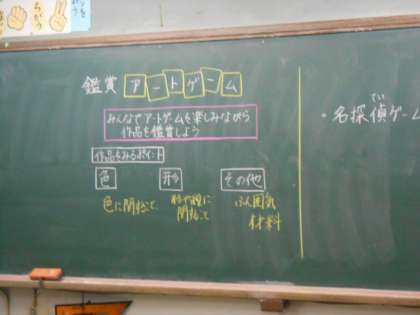 鑑賞 アートゲーム
みんなでアートゲームを楽しみながら
作品を鑑賞しよう
作品をみるポイント
色 形 その他
色に関すること
関すること
ふん囲気
材料
・名探偵ゲーム
てい